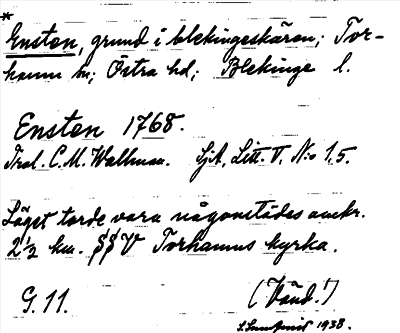 *
Ensten, grund i blekingeskären; Tor-
hamn sn; Östra hd; Blekinge l.
Ensten 1768.
C. M. Wallman. Sjk, Litt. V, N:o 1,5.
Läget torde vara någonstädes omkr.
2 1/2 km. V Torhamns kyrka.
G. 11. (Vänd!)
1938.